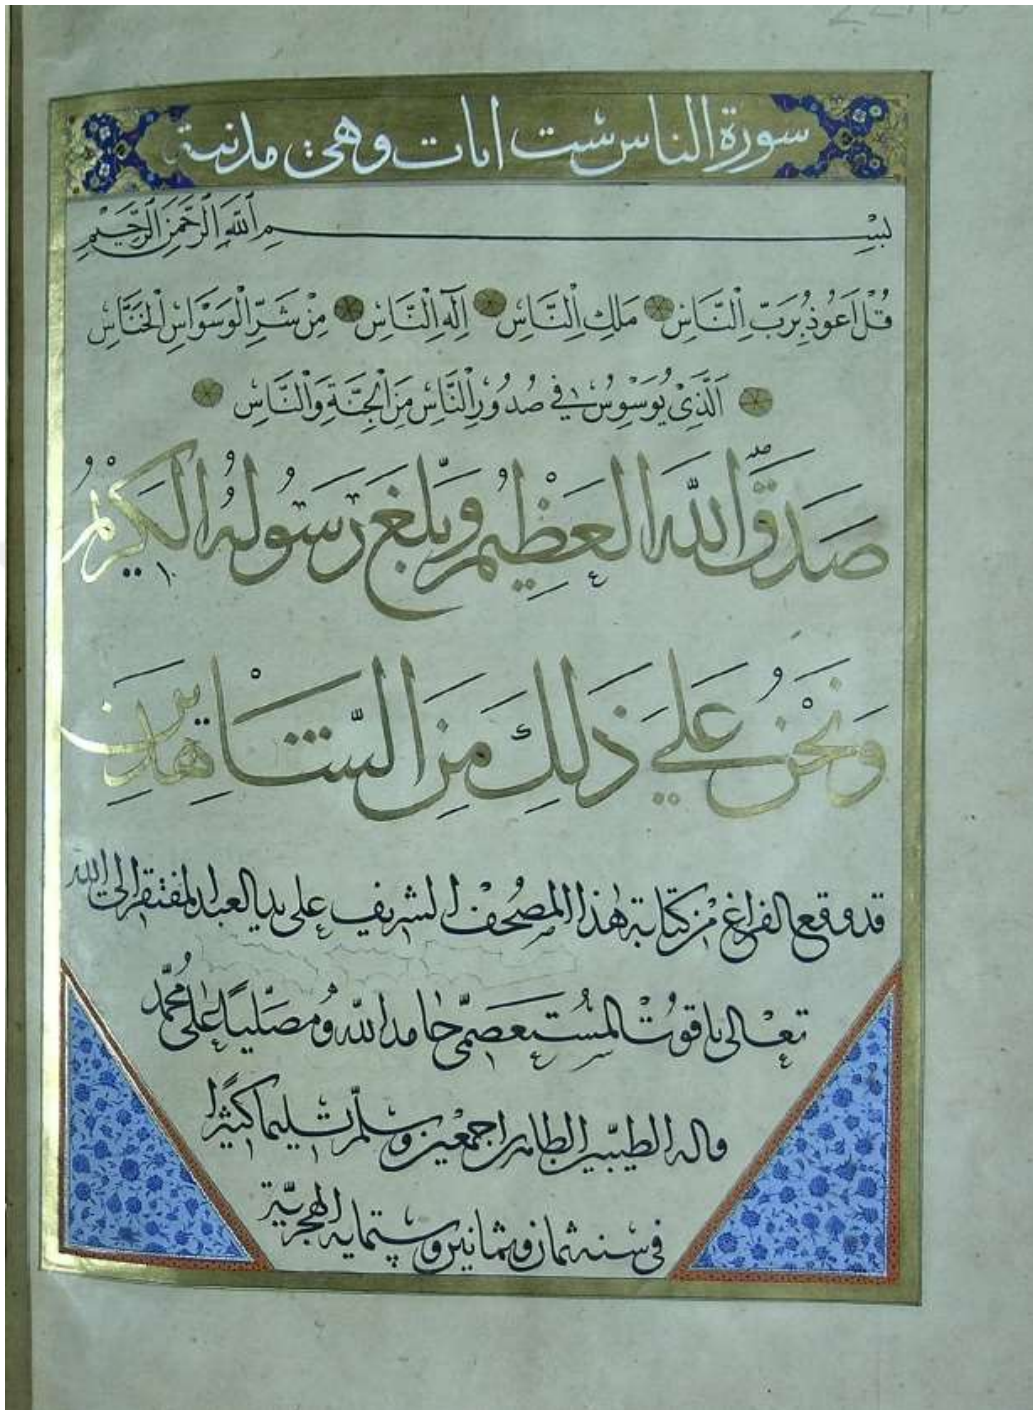 سورة الناس ست ايات وهي مدنية
بِسْمِ اللَّهِ الرَّحْمَنِ الرَّحِيمِ
قُلْ اَعُوذُ بِرَبِّ النَّاسِ مَلِكِ النَّاسِ اِلَهِ النَّاسِ مِنْ شَرِّ الْوَسْوَاسِ الْخَنَّاسِ
اَلَّذِى يُوَسْوِسُ فِي صُدُورِ النَّاسِ مِنَ الْجِنَّةِ وَالنَّاسِ
صَدَقَ اللَّهُ الْعَظِيمُ وَبَلَّغَ رَسُولُهُ الْكَرِيمُ
وَنَحْنُ عَلَى ذَلِكَ مِنَ الشَّاهِدِينَ
قد وقع الفراغ من كتابة هذا المصحف الشريف على يد العبد المفتقر الى الله
تعالى ياقوت المستعصمى حامدا لله ومصليا على محمد
واله الطيبين الطاهرين اجمعين وسلم تسليما كثيرا
فى سنه ثمان وثمانين وستمايه الهجريّة